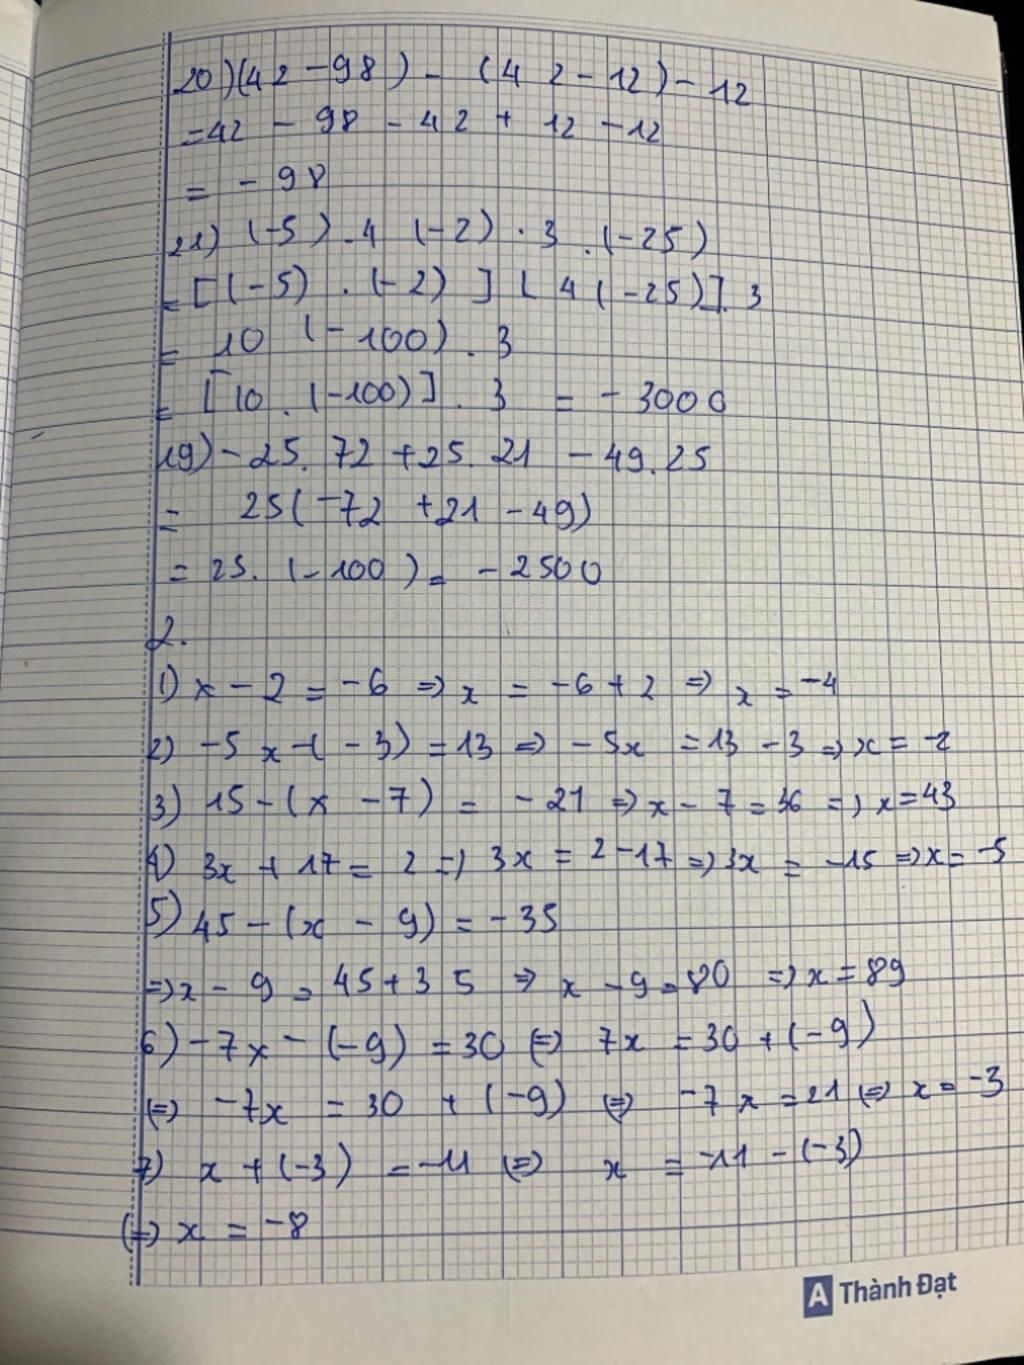 20) (42 - 98) - (42 - 12) - 12
= 42 - 98 - 42 + 12 - 12
= - 98
21) (-5) . 4 (-2) . 3 . (-25)
= [(-5) . (-2)] [4 (-25)] . 3
= 10 (-100) . 3
= [10 . (-100)] . 3 = - 3000
19) - 25. 72 + 25. 21 - 49. 25
= 25(-72 + 21 - 49)
= 25. (-100) = - 2500
2.
1) x - 2 = -6 => x = -6 + 2 => x = -4
2) -5x - (-3) = 13 => -5x = 13 - 3 => x = -2
3) 15 - (x - 7) = -21 => x - 7 = 36 => x = 43
4) 3x + 17 = 2 => 3x = 2 - 17 => 3x = -15 => x = -5
5) 45 - (x - 9) = -35
=> x - 9 = 45 + 35 => x - 9 = 80 => x = 89
6) -7x - (-9) = 30 (=) 7x = 30 + (-9)
(=) -7x = 30 + (-9) (=) -7x = 21 (=) x = -3
7) x + (-3) = -11 (=) x = -11 - (-3)
(=) x = -8
A Thành Đạt